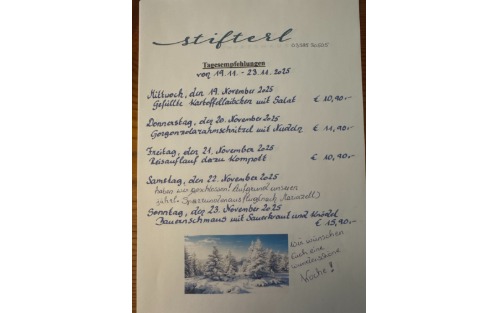 stifterl
Tagesempfehlungen
von 19.11. - 23.11.2025
Mittwoch, den 19. November 2025
Gefüllte Kartoffellaibchen mit Salat € 10,90.-
Donnerstag, den 20. November 2025
Gorgonzolarahmschnitzel mit Nudeln € 11,90.-
Freitag, den 21. November 2025
Reisauflauf dazu Kompott € 10,90.-
Samstag, den 22. November 2025
haben wir geschlossen! Aufgrund unseren
jährl. Sparvereinausflug nach Mariazell!
Sonntag, den 23. November 2025
Bauernschmaus mit Sauerkraut und Knödel € 15,90.-
Wir wünschen
Euch eine
wunderschöne
Woche!